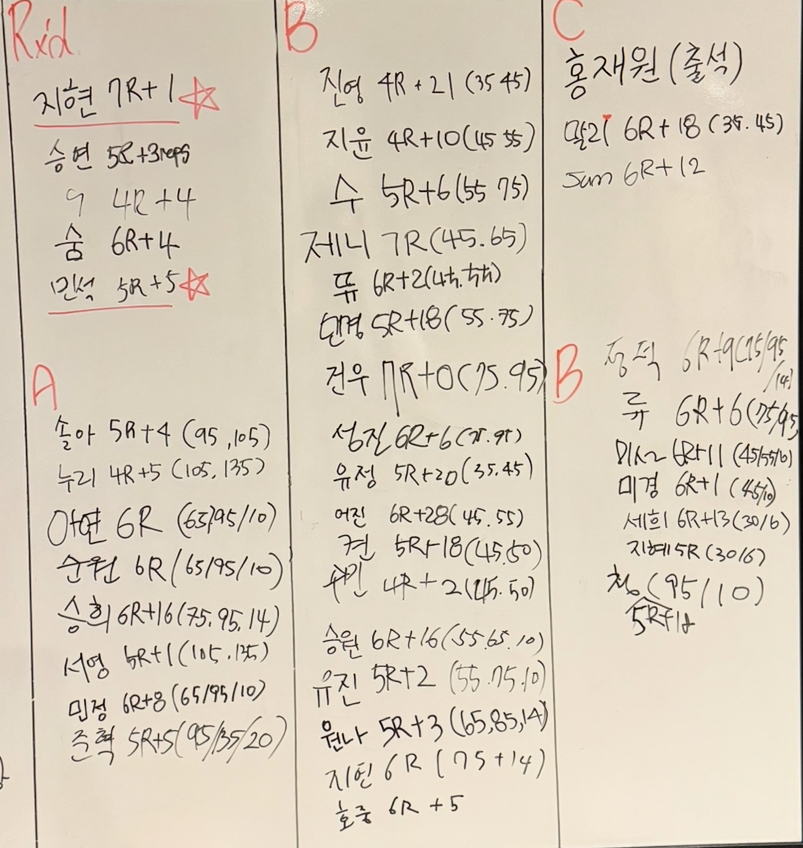 Rxd
지현 7R+1
승연 5R+3reps
구 4R+4
숨 6R+4
민석 5R+5
A
솔아 5R+4 (95,105)
누리 4R+5 (105,135)
아연 6R (65/95/10)
순원 6R (65/95/10)
승희 6R+16 (75.95,14)
서영 5R+1 (105.135)
민정 6R+8 (65/95/10)
준혁 5R+5 (95/135/20)
B
진영 4R+21 (35 45)
지윤 4R+10 (45 55)
수 5R+6 (55 75)
제니 7R (45.65)
6R+2
단경 5R+18 (55.75)
건우 7R+0 (75.95)
성진 6R+6 (75.95)
유정 5R+20 (35.45)
어진 6R+28 (45.55)
켠 5R+18 (45.50)
4R+2 (45.50)
승원 6R+16 (55.65.10)
유진 5R+2 (55.75.10)
원나 5R+3 (65,85,14)
지헌 6R (75+14)
호중 6R+5
C
홍재원 (출석)
말리 6R+18 (35.45)
sum 6R+12
B
정덕 6R+9 (75/95/14)
류 6R+6 (75/95
6R+11 (45/55/10)
미경 6R+1 (45/10)
세희 6R+13 (30/6)
지혜 5R (30/6)
청 (95/10)